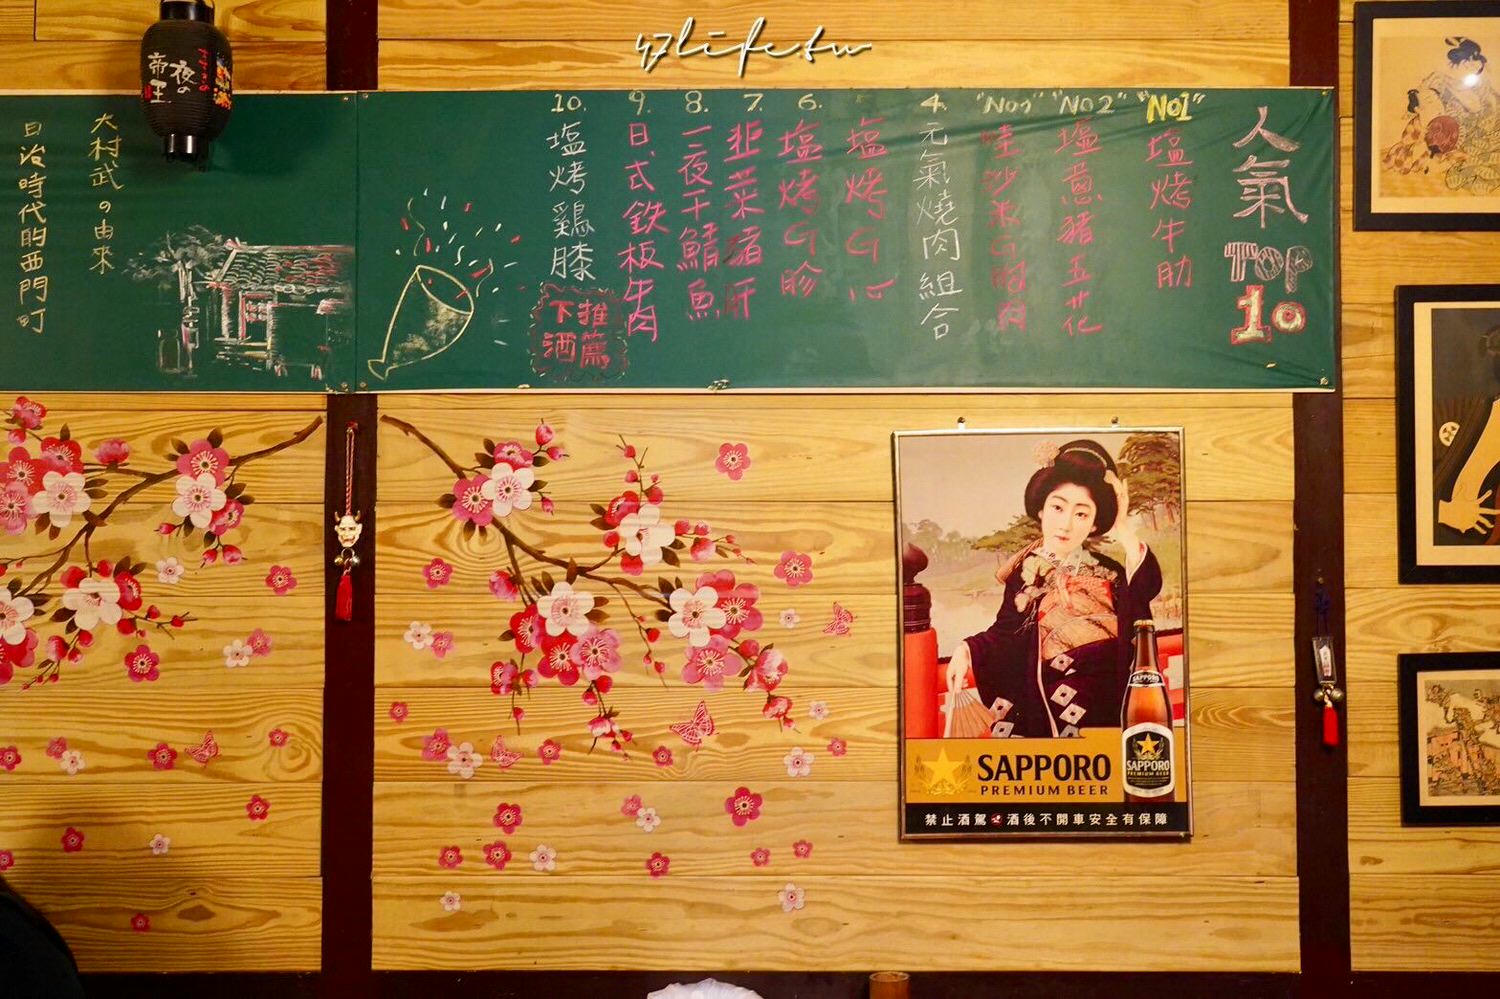 47life.tw
人氣
TOP
10
"No1"
塩烤牛肋
"No2"
塩蔥豬五花
4.
元氣燒肉組合
塩烤G心
6.
塩烤G胗
7.
韭菜豬肝
8.
一夜干鯖魚
9.
日式鉄板牛肉
10.
塩烤鷄膝
推薦
下酒
夜の
帝王
大村武の由來
日治時代的西門町
SAPPORO
SAPPORO
PREMIUM BEER
SAPPORO
PREMIUM BEER
禁止酒駕 酒後不開車安全有保障